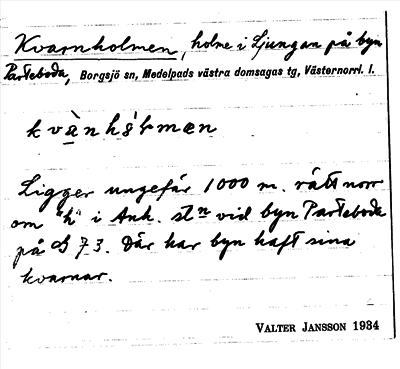 Kvarnholmen, holme i Ljungan på byn
Parteboda, Borgsjö sn, Medelpads västra domsagas tg, Västernorrl. l.
kvànhól̥mɛn
Ligger ungefär 1000 m. rätt norr
om "h" i Anh. stn vid byn Parteboda
på GS 73. Där har byn haft sina
kvarnar.
VALTER JANSSON 1934